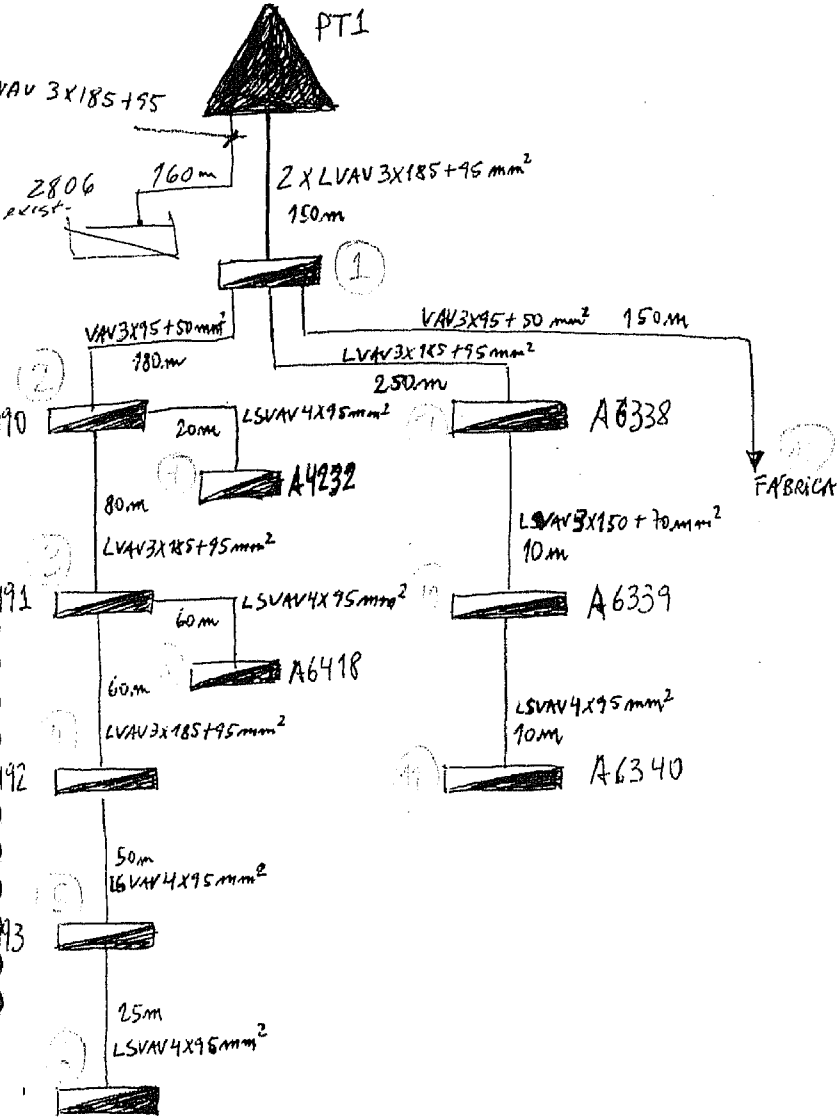 PT1
VAV 3X185+95
160m
2806
exist.
2 X LVAV 3X185+95 mm²
150m
1
VAV 3X95+50 mm² 150m
VAV3X95+50mm²
180m
LVAV3X185+95mm²
250m
2
90
20m
LSVAV4X95mm²
A4232
A6338
FÁBRICA
80m
LVAV3X185+95mm²
3X150+70mm²
10m
3
91
LSVAV4X95mm²
60m
A6418
A6339
60m
LVAV3X185+95mm²
LSVAV4X95mm²
10m
92
A6340
50m
VAV4X95mm²
5
93
25m
LSVAV4X95mm²